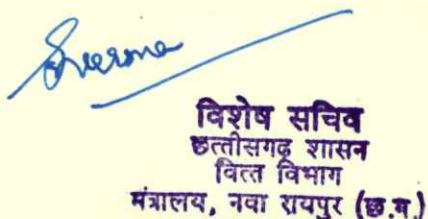 विशेष सचिव
छत्तीसगढ़ शासन
वित्त विभाग
मंत्रालय, नवा रायपुर (छ.ग.)